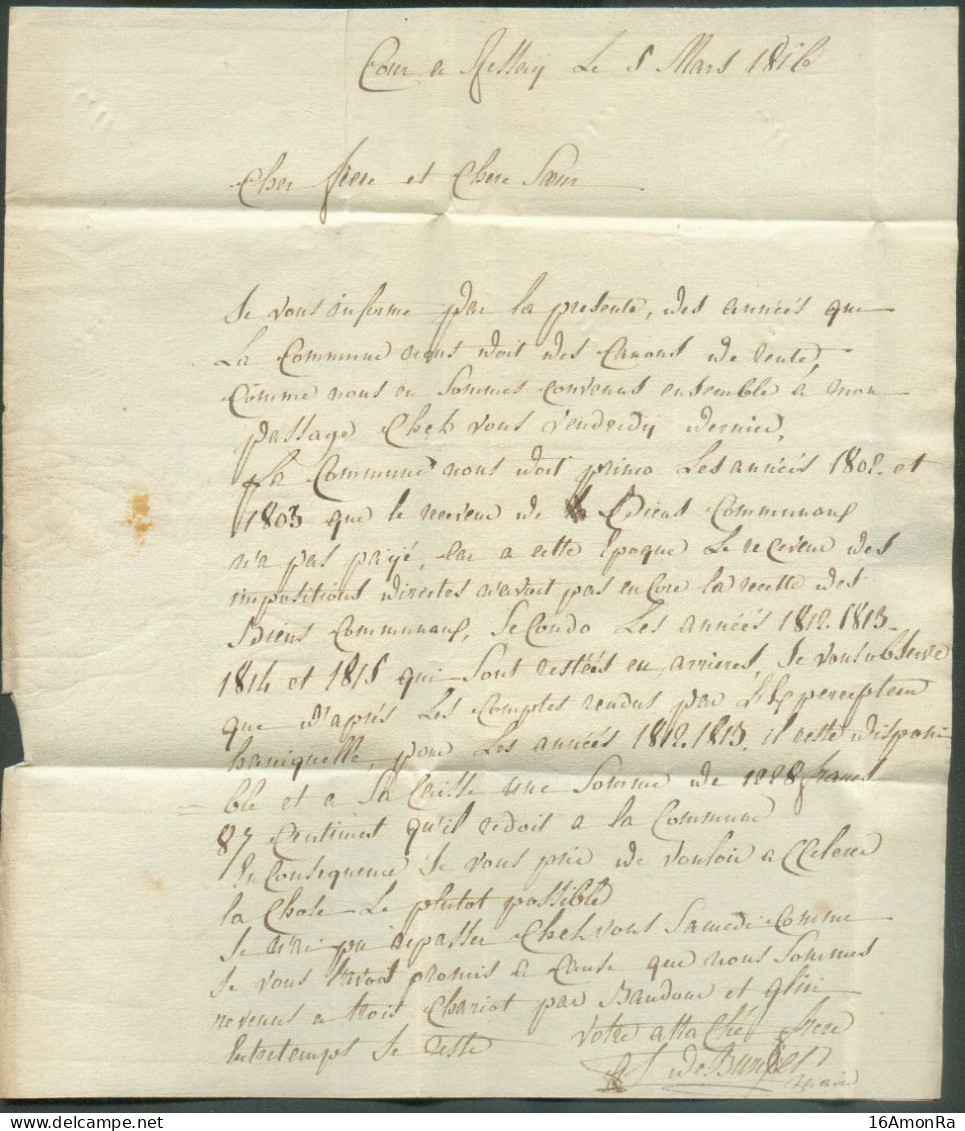 Cour a Le 5 Mars 1816
Cher frere et Chere Sœur
Je vous informe par la presente, des années que
La Commune nous doit des Canons de rente,
Comme nous en Sommes convenus ensemble a mon
passage Cheh vous Vendredy dernier,
La Commune nous doit primo Les années 1802. et
1803 que le receveur de Biens Communaux
n'a pas payé, Car a cette Epoque Le receveur des
impositions directes n'avoit pas encore la recette des
Biens Communaux, Secondo Les années 1812. 1813.
1814 et 1815 qui Sont restées en arrieres, Je vous observe
que d'aprés Les Comptes rendus par L'Ex percepteur
haniquelle, pour Les années 1812. 1813. il reste disponi
ble et a Sa Caisse une Somme de 1228 francs
87 Centimes qu'il redoit a la Commune
En Consequence Je vous prie de vouloir accelerer
la Chose Le plutot possible
Je n'ai pu repasser Cheh vous Samedi Comme
Je vous l'avois promis a Cause que nous Sommes
revenus a trois Chariot par Baudour et glin
Entretemps Je reste votre attaché frere
maire
16AmonRa